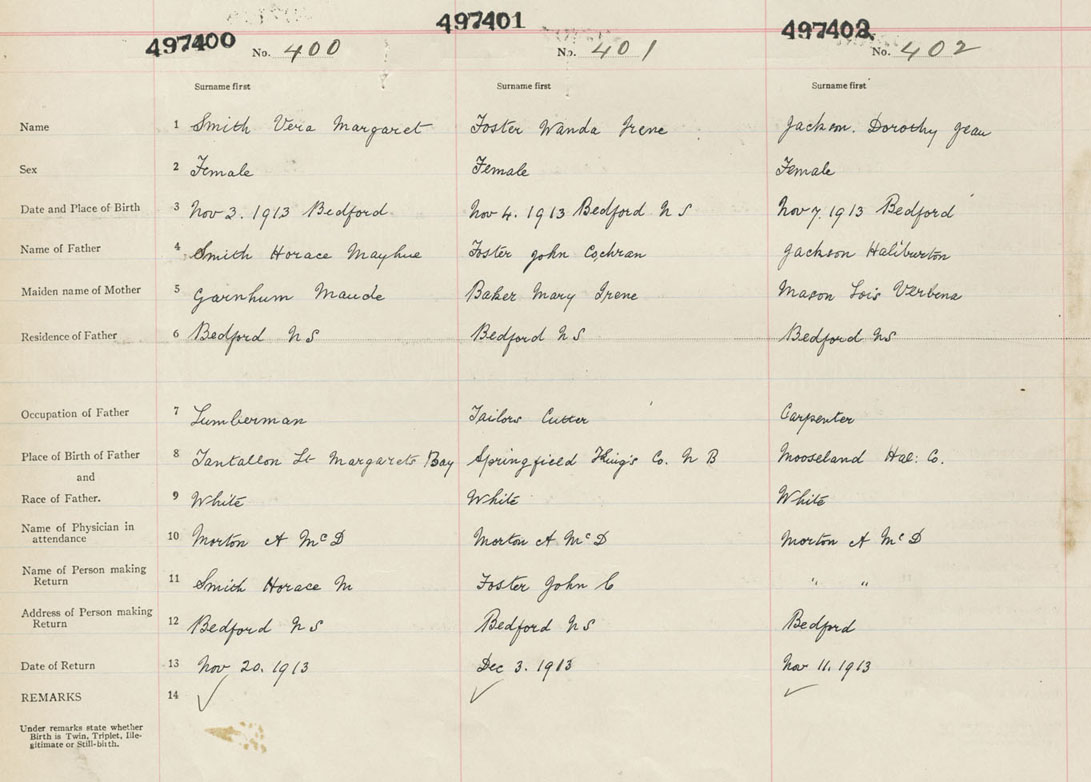 497400 497401 497402
No. 400 No. 401 No. 402
Surname first Surname first Surname first
Name 1 Smith Vera Margaret Foster Wanda Irene Jackson. Dorothy Jean
Sex 2 Female Female Female
Date and Place of Birth 3 Nov 3. 1913 Bedford Nov 4. 1913 Bedford N S Nov 7. 1913 Bedford
Name of Father 4 Smith Horace Mayhue Foster John Cochran Jackson Haliburton
Maiden name of Mother 5 Garnhum Maude Baker Mary Irene Mason Lois Verbena
Residence of Father 6 Bedford N S Bedford N S Bedford NS
Occupation of Father 7 Lumberman Tailors Cutter Carpenter
Place of Birth of Father 8 Tantallon St Margarets Bay Springfield King's Co. N B Mooseland Hal: Co.
and
Race of Father. 9 White White White
Name of Physician in
attendance 10 Morton A McD Morton A McD Morton A McD
Name of Person making
Return 11 Smith Horace M Foster John C " "
Address of Person making
Return 12 Bedford N S Bedford N S Bedford
Date of Return 13 Nov 20. 1913 Dec 3. 1913 Nov 11. 1913
REMARKS 14 ✓ ✓ ✓
Under remarks state whether
Birth is Twin, Triplet, Ille-
gitimate or Still-birth.